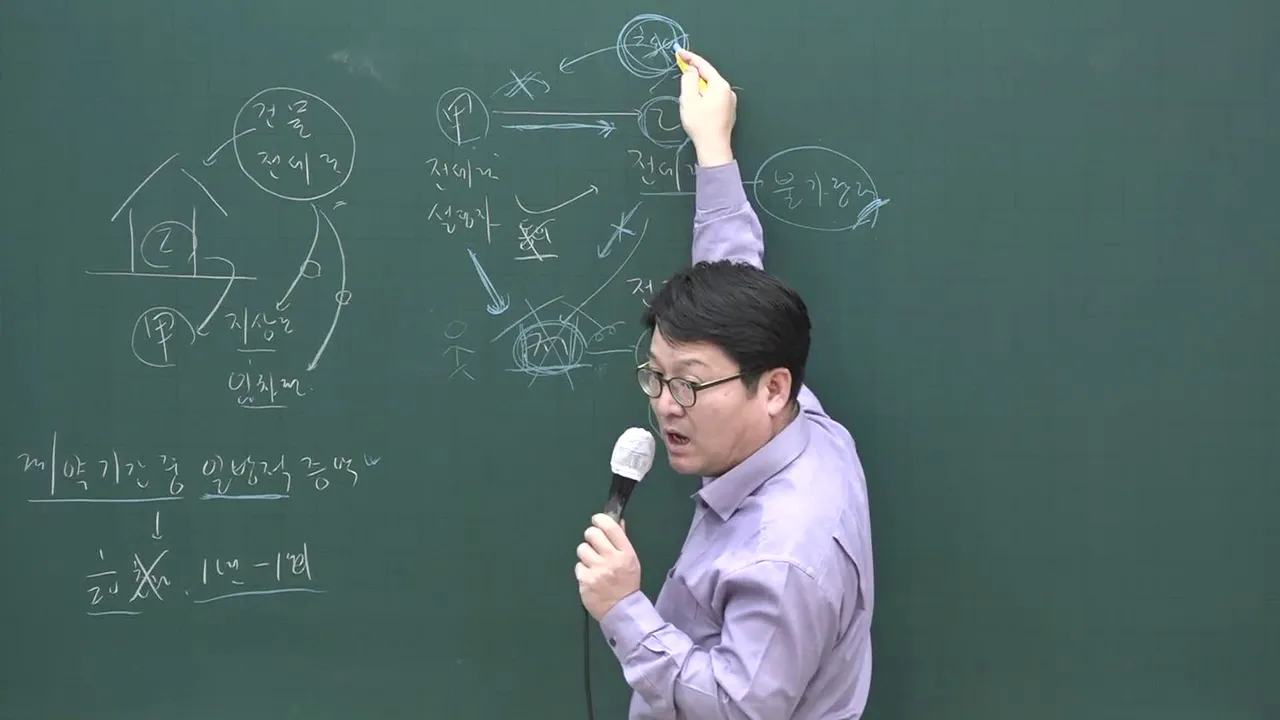 건물
전세권
乙
甲
지상권
임차권.
계약기간 중 일방적 증액
1/20 초과. 1년 -1회
甲
乙
전세권
설정자
동의
전세권
불가항력
전